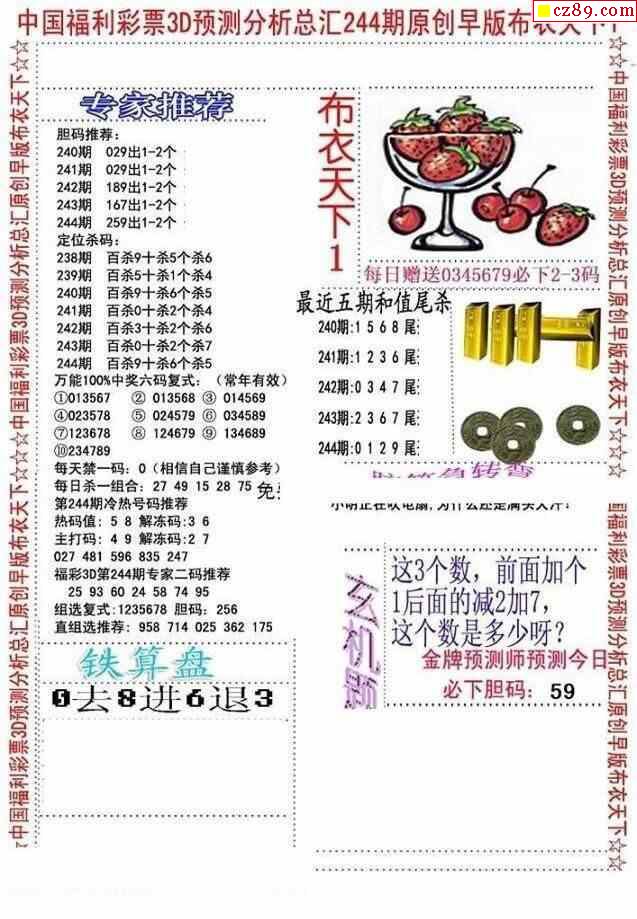 cz89.com
中国福利彩票3D预测分析总汇244期原创早版布衣天下
专家推荐
胆码推荐：
240期 029出1-2个
241期 029出1-2个
242期 189出1-2个
243期 167出1-2个
244期 259出1-2个
定位杀码：
238期 百杀9十杀5个杀6
239期 百杀5十杀1个杀4
240期 百杀9十杀6个杀5
241期 百杀0十杀2个杀4
242期 百杀3十杀2个杀6
243期 百杀0十杀2个杀7
244期 百杀9十杀6个杀5
万能100%中奖六码复式：（常年有效）
①013567 ② 013568 ③ 014569
④023578 ⑤ 024579 ⑥ 034589
⑦123678 ⑧ 124679 ⑨ 134689
⑩234789
每天禁一码：0（相信自己谨慎参考）
每日杀一组合：27 49 15 28 75 免
第244期冷热号码推荐
热码值：5 8 解冻码:3 6
主打码：4 9 解冻码:2 7
027 481 596 835 247
福彩3D第244期专家二码推荐
25 93 60 24 58 74 95
组选复式:1235678 胆码：256
直组选推荐：958 714 025 362 175
铁算盘
0去8进6退3
布衣天下1
每日赠送0345679必下2-3码
最近五期和值尾杀
240期:1 5 6 8 尾
241期:1 2 3 6 尾
242期:0 3 4 7 尾
243期:2 3 6 7 尾
244期:0 1 2 9 尾
脑筋急转弯
小明正在吹电扇,为什么还是满头大汗?
玄机题
这3个数，前面加个
1后面的减2加7，
这个数是多少呀？
金牌预测师预测今日
必下胆码：59
☆☆中国福利彩票3D预测分析总汇原创早版布衣天下☆☆
☆☆中国福利彩票3D预测分析总汇原创早版布衣天下☆☆